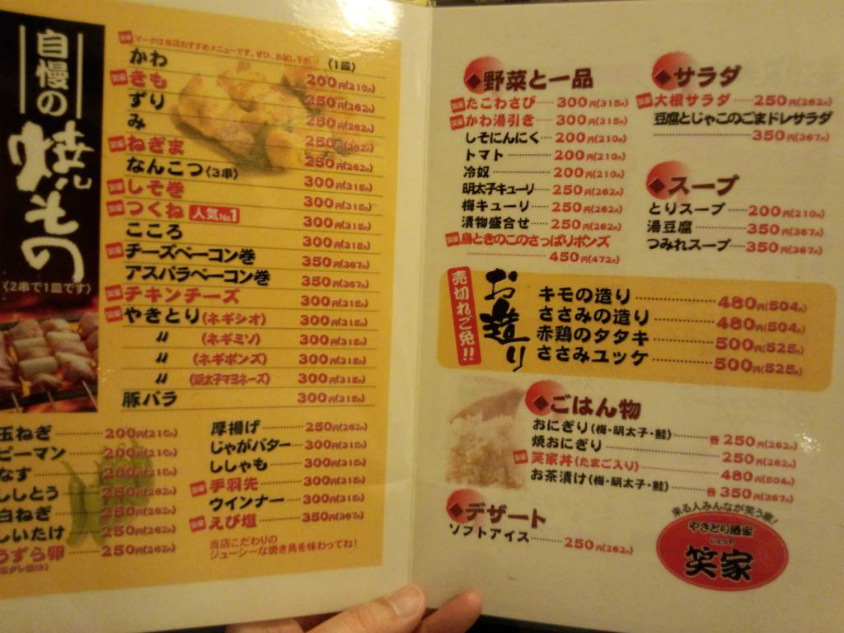 自慢の
焼もの
(2串で1皿です)
マークは当店おすすめメニューです。ぜひ、お試し下さい。
(1皿)
かわ 200円(210円)
きも 250円(262円)
ずり 250円(262円)
み 250円(262円)
ねぎま 250円(262円)
なんこつ(3串) 250円(262円)
しそ巻 300円(315円)
つくね 人気No1 300円(315円)
こころ 300円(315円)
チーズベーコン巻 350円(367円)
アスパラベーコン巻 350円(367円)
チキンチーズ 300円(315円)
やきとり(ネギシオ) 300円(315円)
〃 (ネギミソ) 300円(315円)
〃 (ネギポンズ) 300円(315円)
〃 (明太子マヨネーズ) 300円(315円)
豚バラ 300円(315円)
玉ねぎ 200円(210円)
ピーマン 200円(210円)
なす 200円(210円)
ししとう 250円(262円)
白ねぎ 250円(262円)
しいたけ 250円(262円)
うずら卵 250円(262円)
厚揚げ 250円(262円)
じゃがバター 300円(315円)
ししゃも 300円(315円)
手羽先 300円(315円)
ウインナー 300円(315円)
えび塩 350円(367円)
当店こだわりの
ジューシーな焼き鳥を味わってね!
野菜と一品
たこわさび 300円(315円)
かわ湯引き 300円(315円)
しそにんにく 200円(210円)
トマト 200円(210円)
冷奴 200円(210円)
明太子キューリ 250円(262円)
梅キューリ 250円(262円)
漬物盛合せ 250円(262円)
鳥ときのこのさっぱりポンズ
450円(472円)
サラダ
大根サラダ 250円(262円)
豆腐とじゃこのごまドレサラダ
350円(367円)
スープ
とりスープ 200円(210円)
湯豆腐 350円(367円)
つみれスープ 350円(367円)
売切れご免!!
お造り
キモの造り 480円(504円)
ささみの造り 480円(504円)
赤鶏のタタキ 500円(525円)
ささみユッケ 500円(525円)
ごはん物
おにぎり(梅・明太子・鮭) 各250円(262円)
焼おにぎり 250円(262円)
笑家丼(たまご入り) 480円(504円)
お茶漬け(梅・明太子・鮭) 各350円(367円)
デザート
ソフトアイス 250円(262円)
来る人みんなが笑う家!
やきとり酒家
笑家